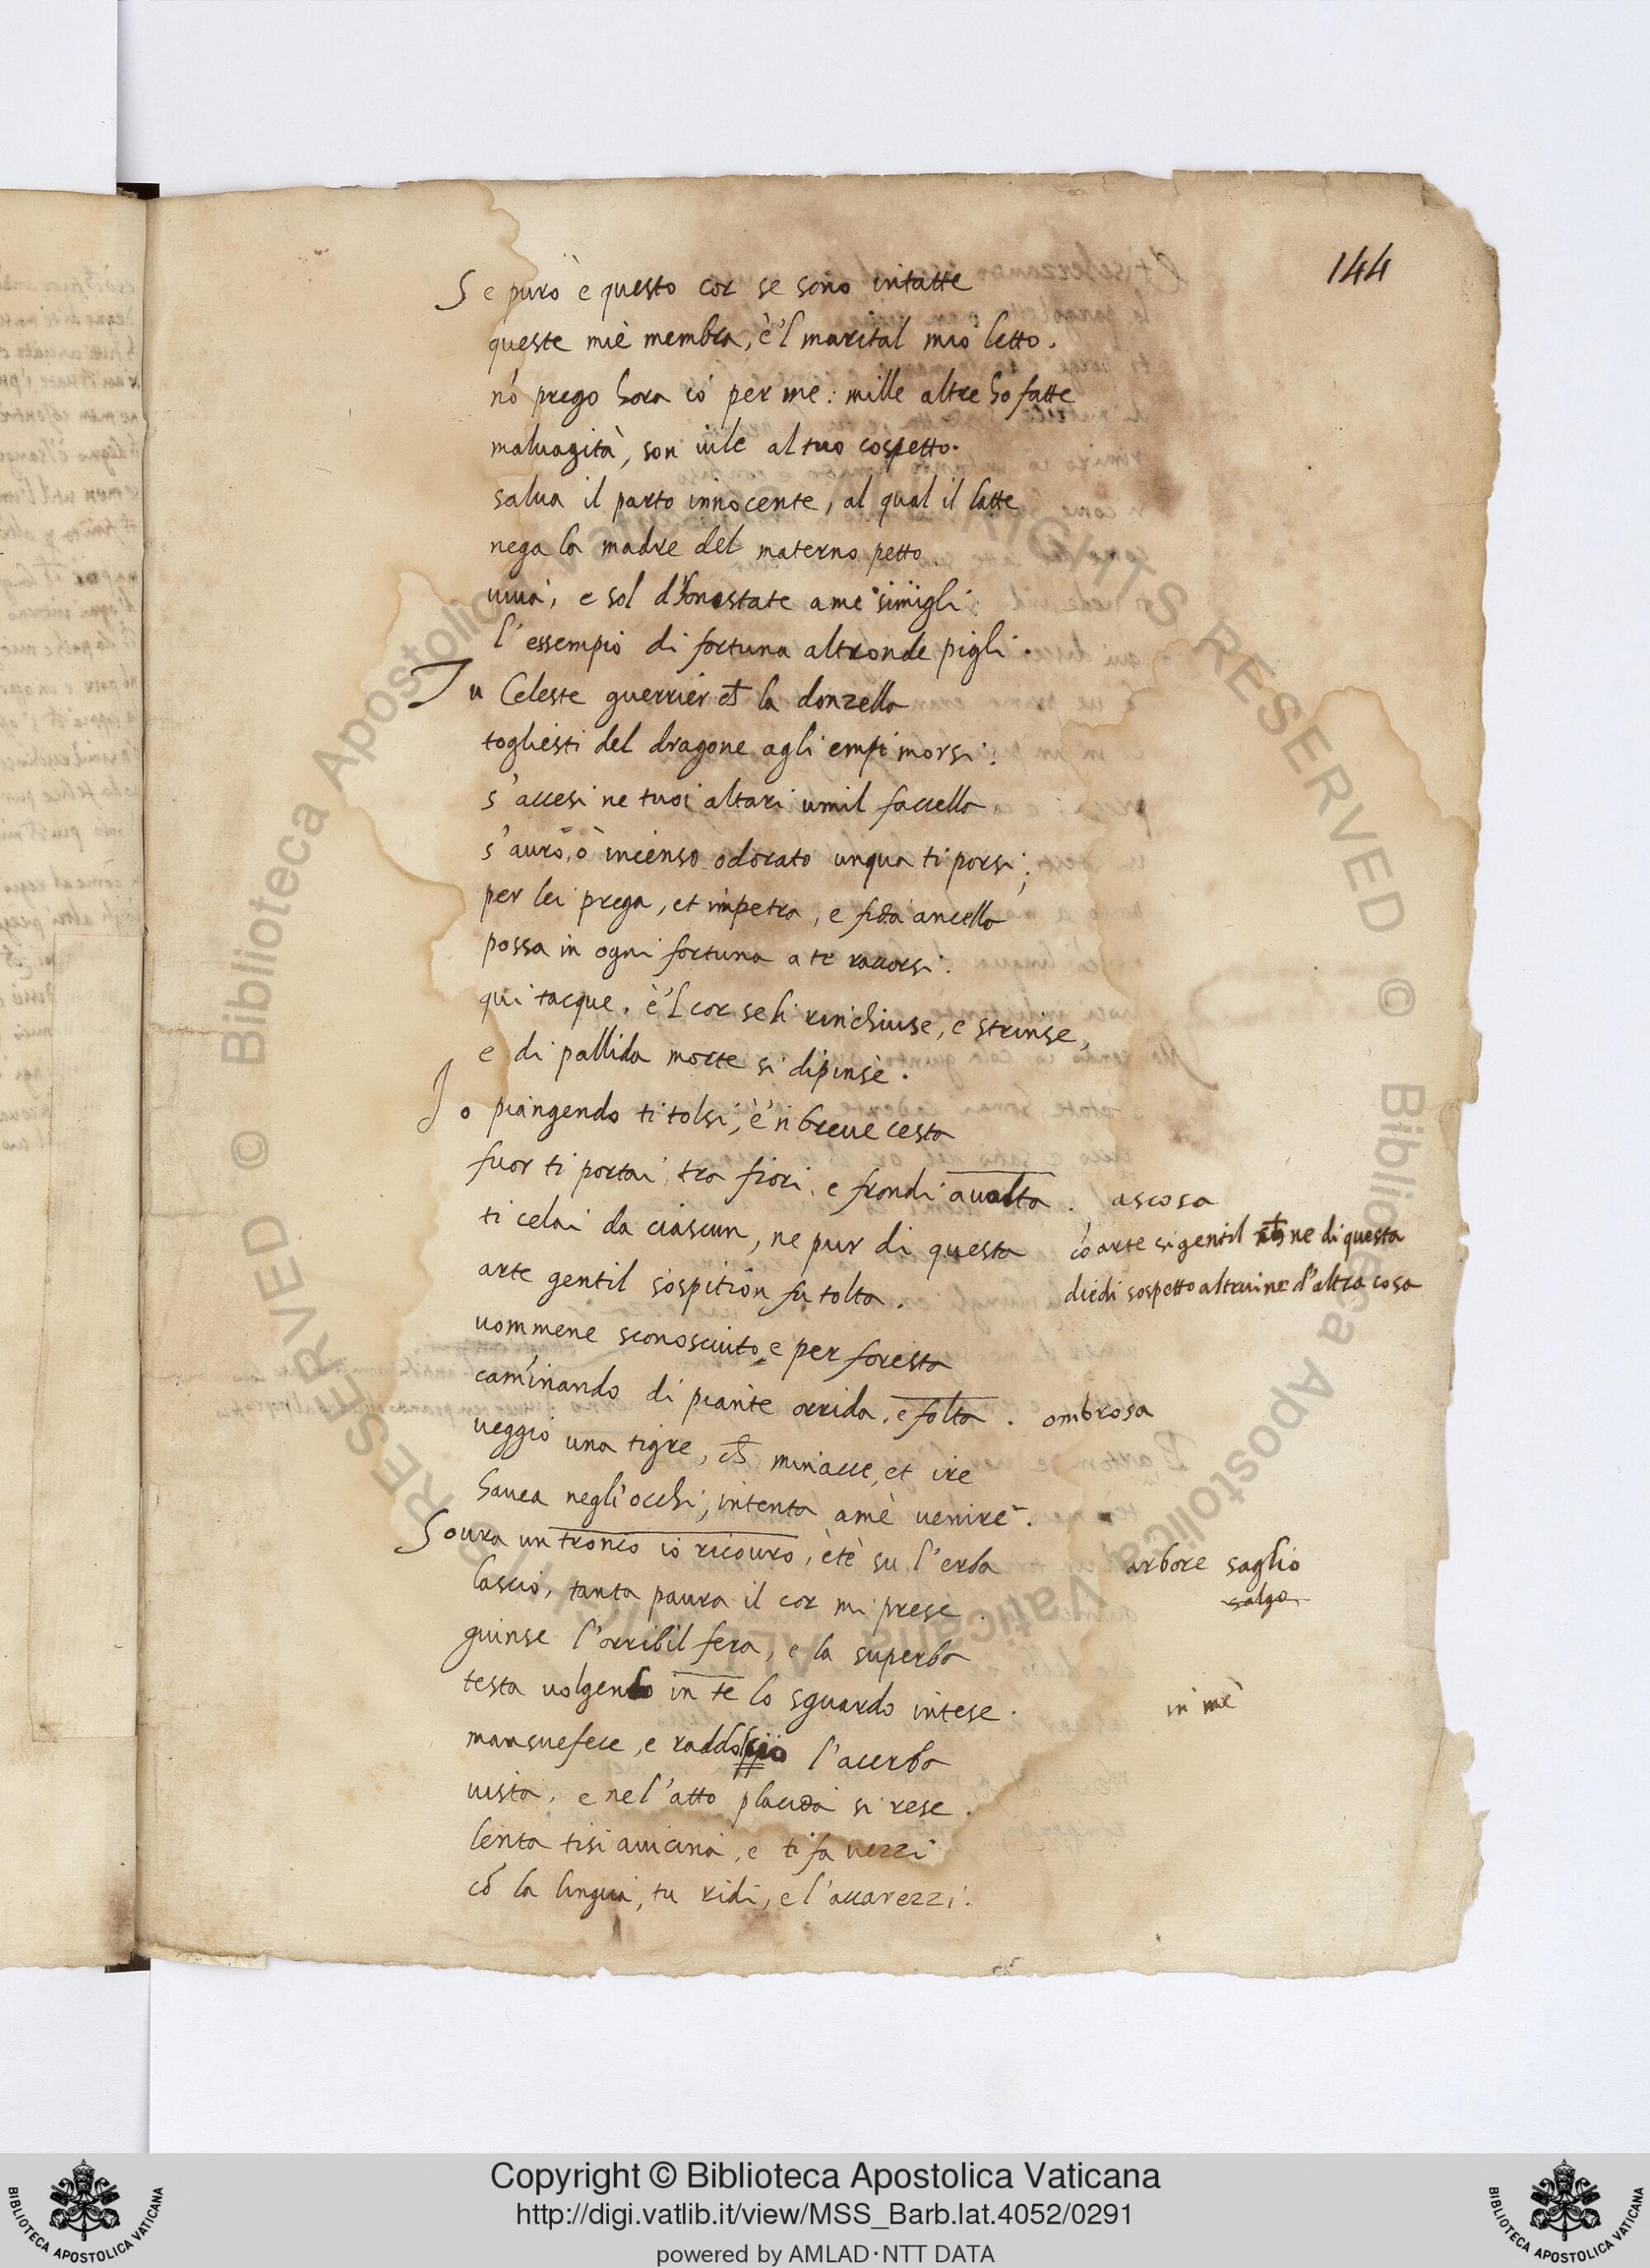 144
Se puro è questo cor se sono intatte
queste mie membra, è'l marital mio letto.
nó prego hora ió per me: mille altre hó fatte
maluagità, son uile al tuo cospetto.
salua il parto innocente, al qual il latte
nega la madre del materno petto
uiua, e sol d'honestate a me simigli:
l'essempio di fortuna altronde pigli.
Tu Celeste guerrier ch la donzella
togliesti del dragone agli empi morsi:
s'accesi ne tuoi altari umil facella
s'auro, ò incenso odorato unqua ti porsi;
per lei prega, et impetra, e fida ancella
possa in ogni fortuna a te raccorsi.
qui tacque. è'l cor se li rinchiuse, e strinse,
e di pallida morte si dipinse.
Io piangendo ti tolsi, è'n breue cesta
fuor ti portai, tra fiori, e frondi auolta. ascosa
ti celai da ciascun, ne pur di questa có arte si gentil ch ne di questa
arte gentil sospition fu tolta. diedi sospetto altrui ne d'altra cosa
uommene sconosciuto, e per foresta
caminando di piante orrida, e folta. ombrosa
ueggio una tigre, ch minacce, et ire
hauea negl'occhi, intenta a mè uenire.
Soura un tronco io ricouro, è tè su l'erba arbore saglio
salgo
lascio, tanta paura il cor mi prese.
giunse l'orribil fera, e la superba
testa uolgendo in te lo sguardo intese. in me
mansuefece, e raddolcio l'acerba
uista, e nel'atto placida si rese.
lenta ti si auicina, e ti fa uezzi
có la lingua, tu ridi, e l'accarezzi.
© Biblioteca Apostolica Vaticana ALL RIGHTS RESERVED
© Biblioteca Apostolica Vaticana ALL RIGHTS RESERVED
BIBLIOTECA APOSTOLICA VATICANA
Copyright © Biblioteca Apostolica Vaticana
http://digi.vatlib.it/view/MSS_Barb.lat.4052/0291
powered by AMLAD·NTT DATA
BIBLIOTECA APOSTOLICA VATICANA